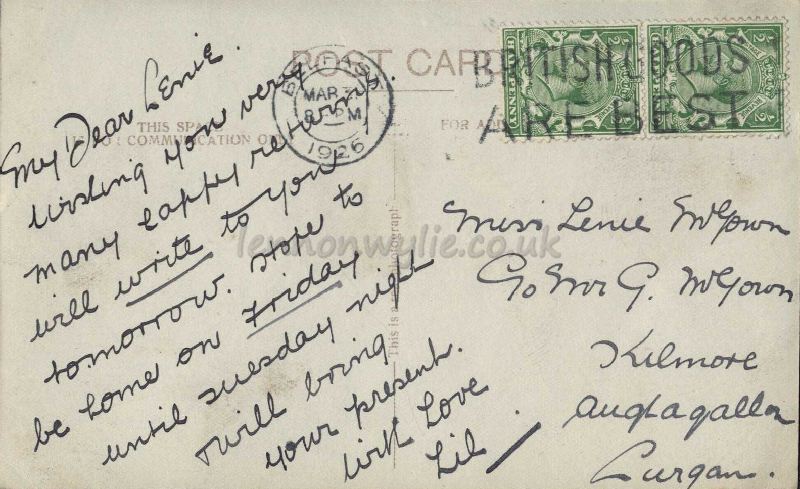 POST CARD
THIS SPACE
FOR COMMUNICATION ONLY
FOR
BELFAST
MAR
8 PM
1926
BRITISH GOODS
ARE BEST
My Dear Lenie.
Wishing you very
many happy returns.
will write to you
tomorrow. Hope to
be home on Friday
until Tuesday night
& will bring
your present.
With Love
Lil
Miss Lenie McGown
C/o Mr G. McGown
Kilmore
Aughagallon
Lurgan.
This is a
lennonwylie.co.uk
HALFPENNY
HALFPENNY